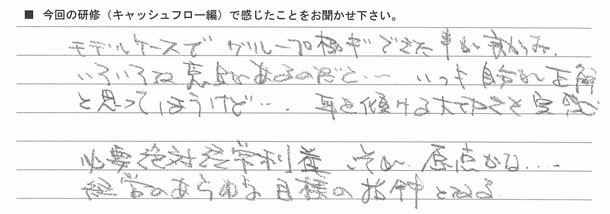 ■ 今回の研修（キャッシュフロー編）で感じたことをお聞かせ下さい。
モデルケースで グループ 出来た事が
いろいろな意見があるものだと… いつも自分が正解
と思ってしまうけど…、耳を傾ける大切さを実感
必要絶対経常利益 原点かな……
経営のあらゆる目標の指針となる